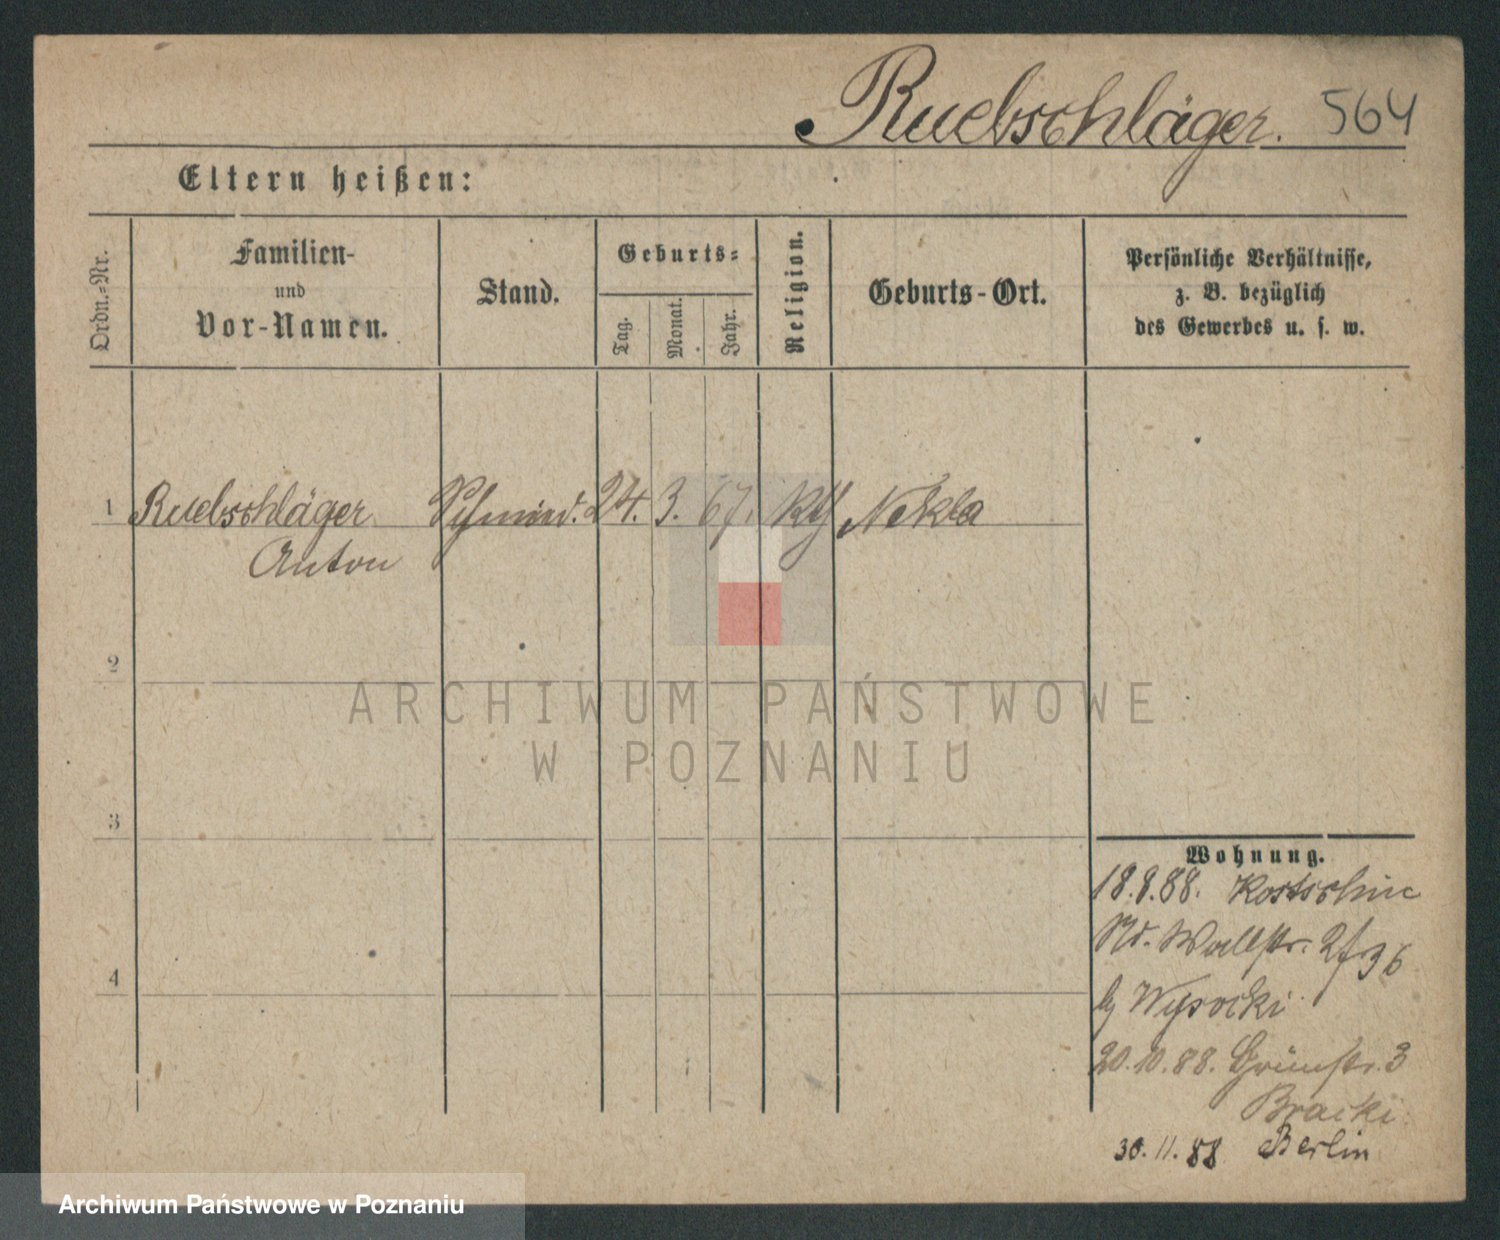 Ruebschläger. 564
Eltern heißen:
Ordn.-Nr.
Familien-
und
Vor-Namen.
Stand.
Geburts-
Tag.
Monat.
Jahr.
Religion.
Geburts-Ort.
Persönliche Verhältnisse,
z. B. bezüglich
des Gewerbes u. s. w.
1 Ruebschläger Schmied. 24. 3. 67. kth Nekla
Anton
2
ARCHIWUM PAŃSTWOWE
W POZNANIU
3
Wohnung.
18.8.88. Kostschin
Nd. Wallstr. 2/36
4
b/ Wysocki
20.10.88. Grünstr. 3
Bracki
30.11.88 Berlin
Archiwum Państwowe w Poznaniu